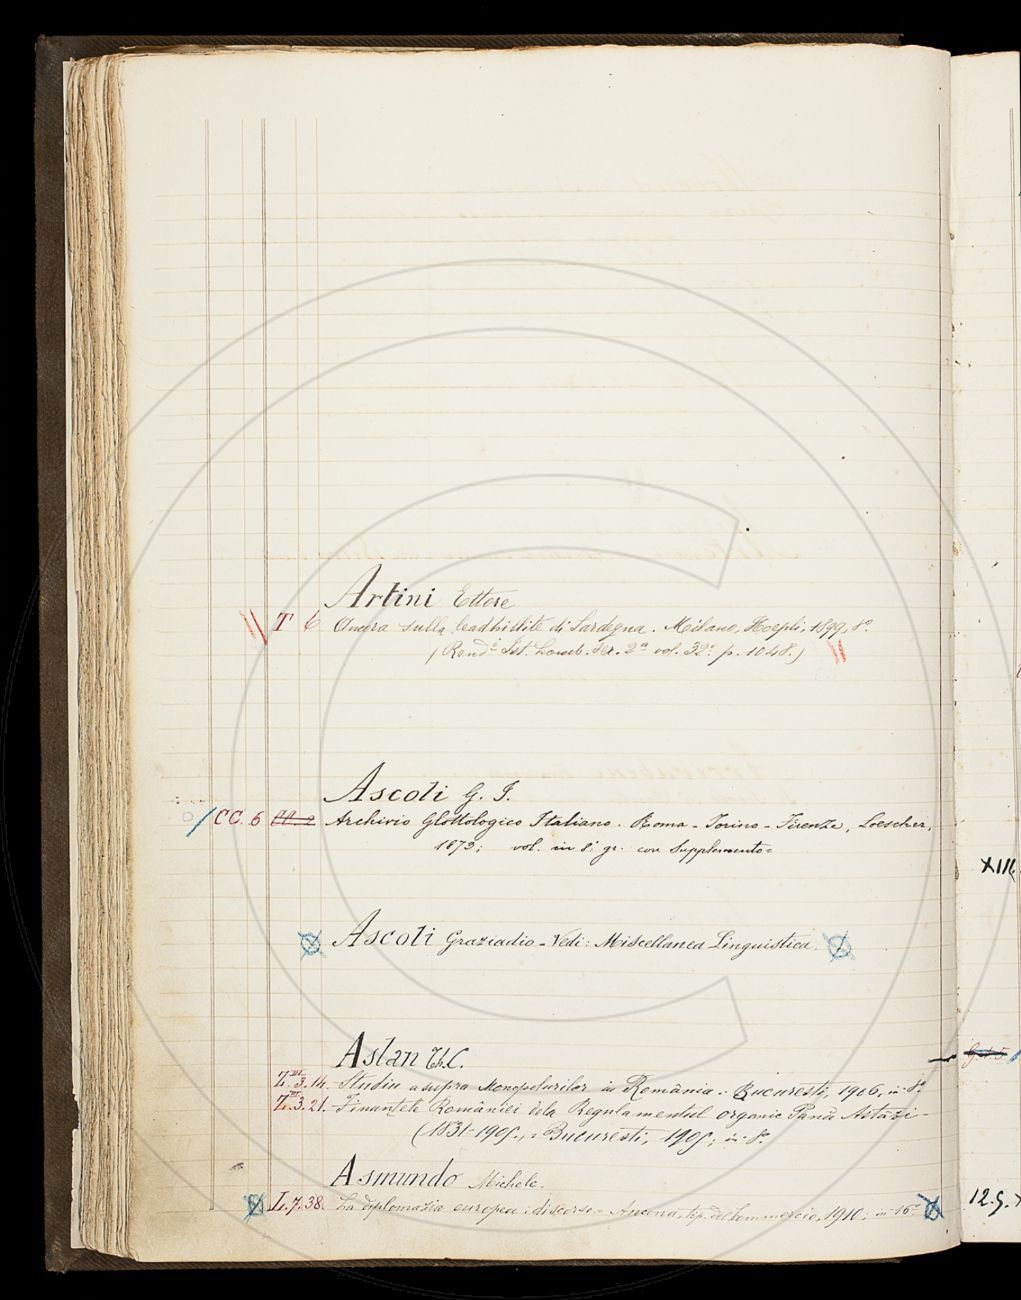 Artini Ettore
T 6 Ancora sulla leadhillite di Sardegna. Milano, Hoepli, 1899, 8°.
(Rend.i Ist. Lomb. Ser. 2a vol. 32° p. 1048.)
Ascoli G. I.
CC. 6 CC. 2 Archivio Glottologico Italiano. Roma - Torino - Firenze, Loescher,
1873; vol. in 8° gr. con Supplemento=
Ascoli Graziadio - Vedi: Miscellanea Linguistica.
XIII
Aslan Th. C.
Z.III.3.14. Studiu asupra Monopolurilor in România.: Bucuresti, 1906, in-8°
Z.III.3.21. Finantele României dela Regulamentul organic Pană Astăzi -
(1831-1905., : Bucuresti, 1905; in-8°.
Asmundo Michele.
L.7.38. La diplomazia europea: discorso= Ancona, tip. del Commercio, 1910; in-16°.
12.5.